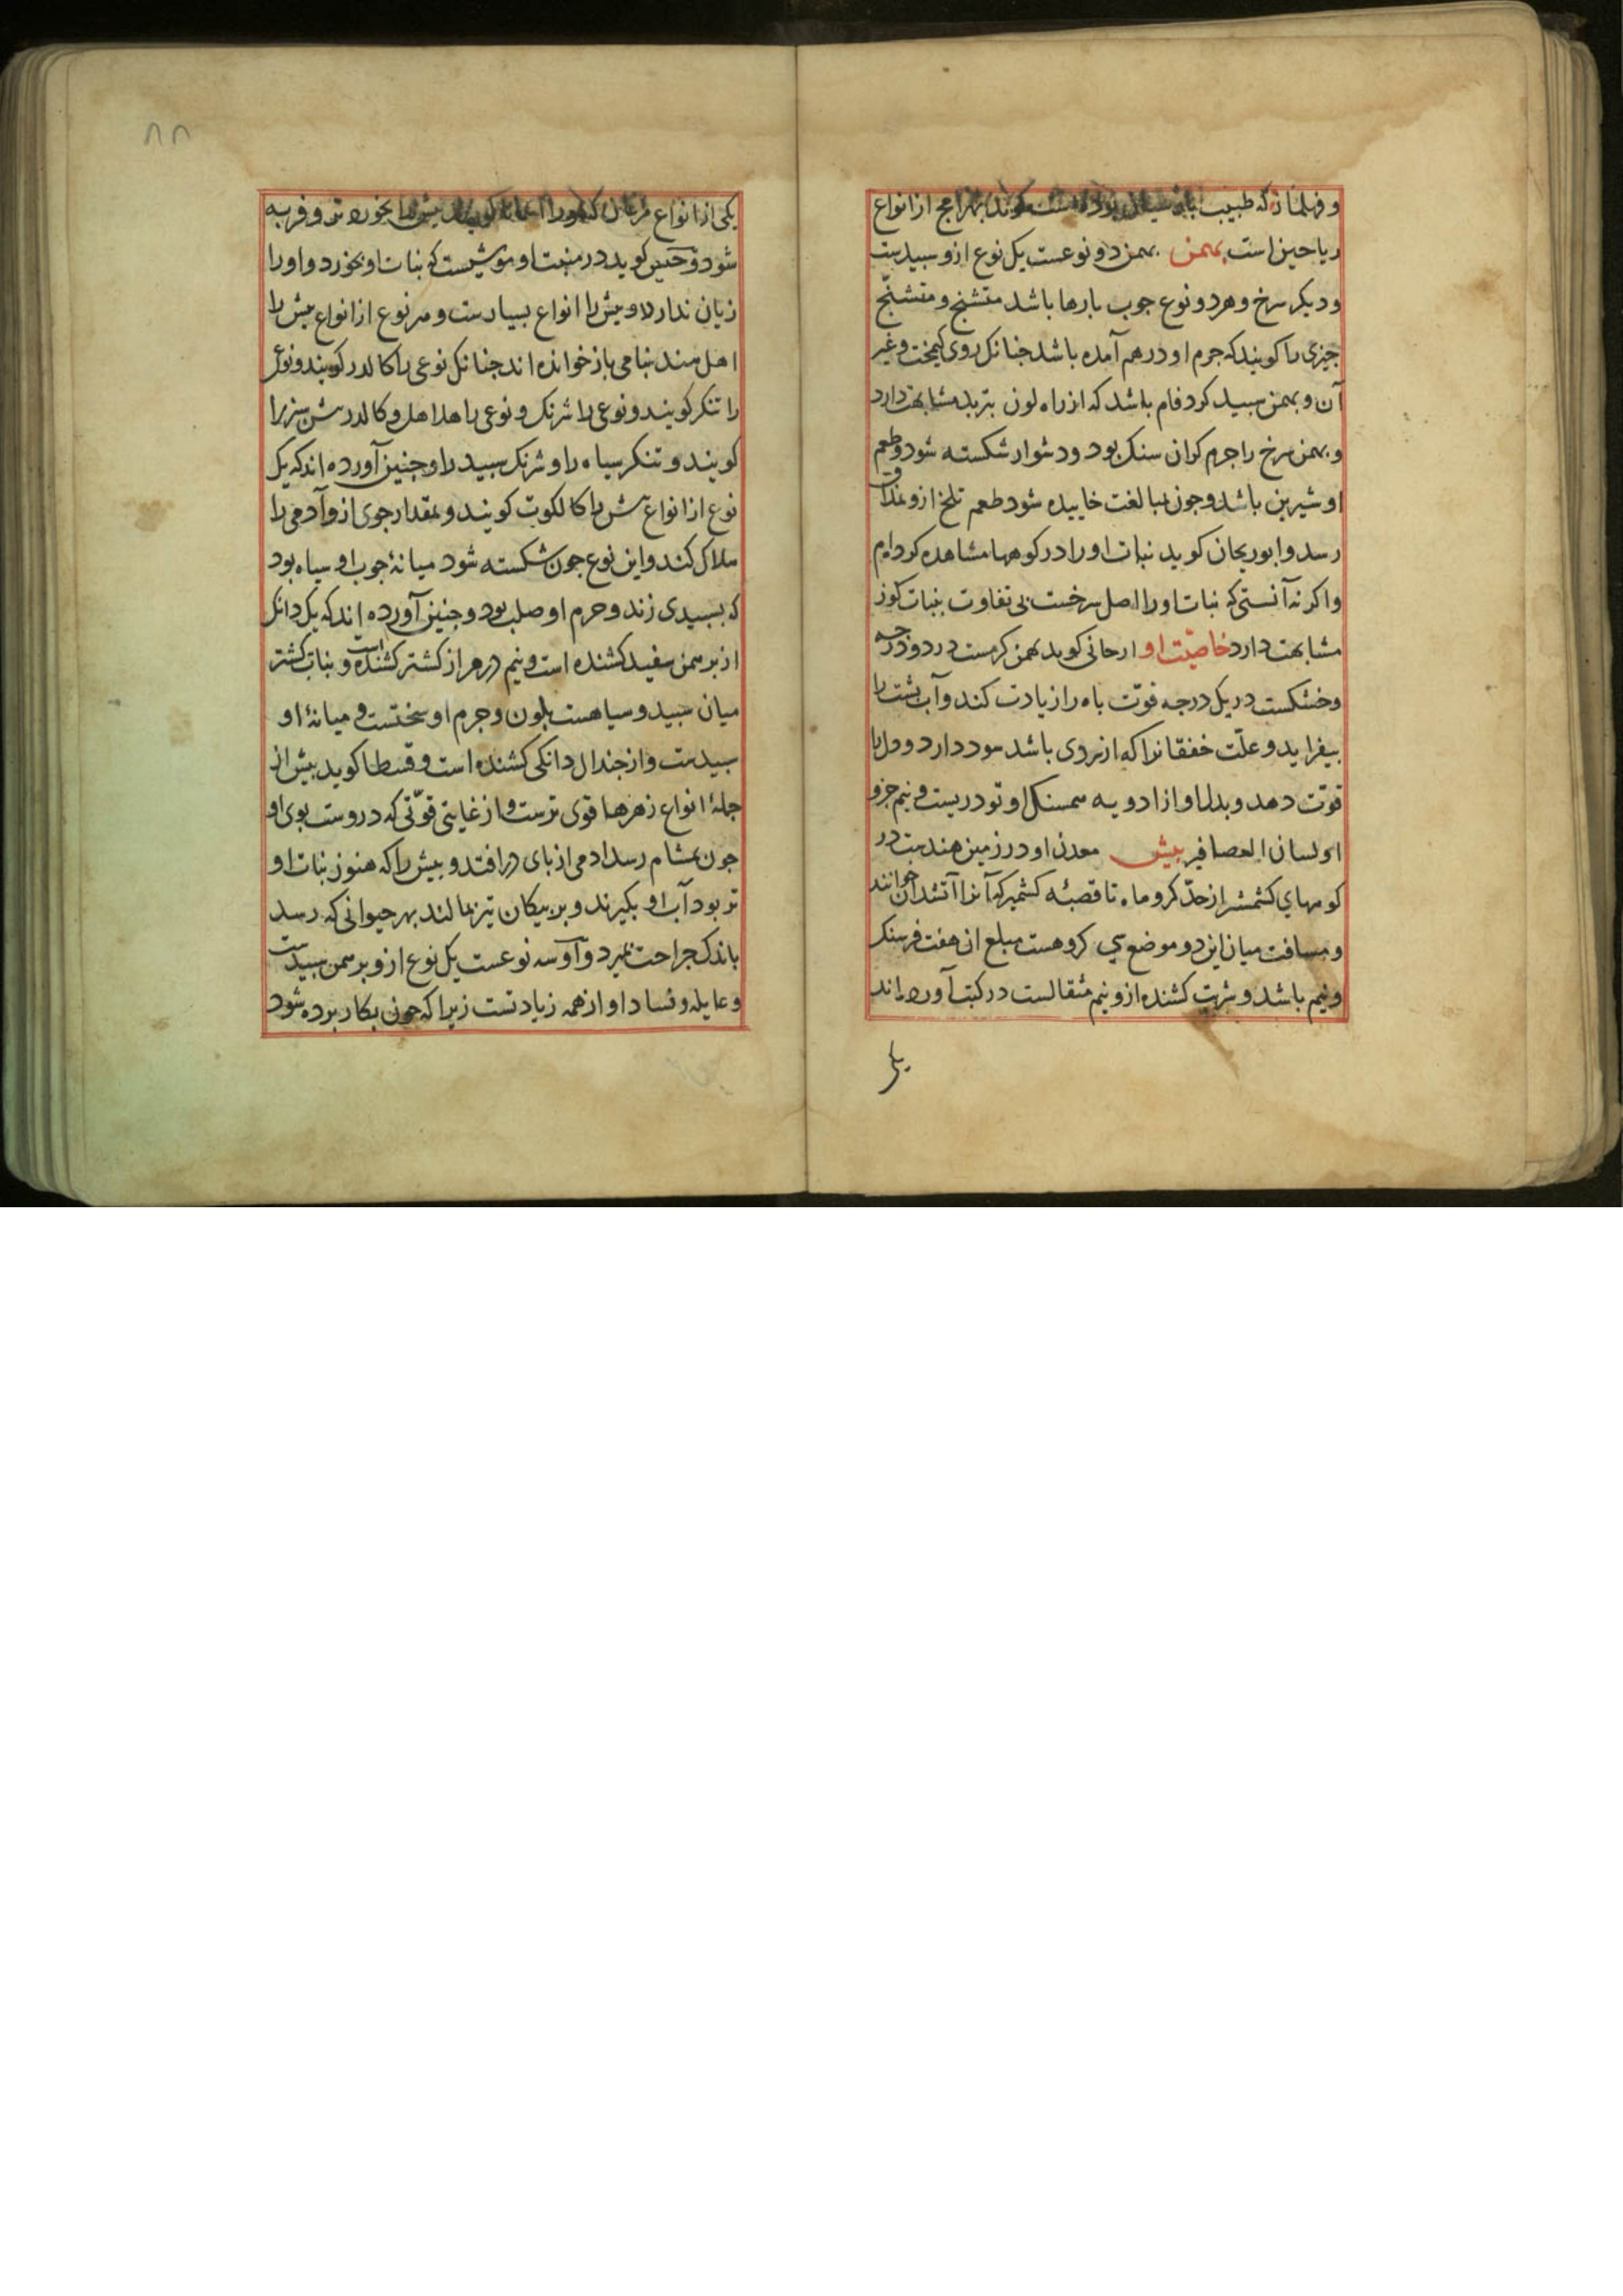 و فهلمان که طبیب بوده است کویند بهرامج از انواع
ریاحین است بهمن بهمن دو نوعست یک نوع ازو سبیدست
و دیکر سرخ و هر دو نوع جوب بارها باشد متشنج و متشنّج
جیزی را کویند که جرم او درهم آمده باشد جنانک روی کیمخت و غیر
آن و بهمن سبید کرد فام باشد که از راه لون بتربد مشابهت دارد
و بهمن سرخ را جرم کران سنک بود و دشوار شکسته شود و طعم
او شیرین باشد و جون مبالغت خاییده شود طعم تلخ ازو بمذاق
رسد و ابوریحان کوید نبات او را در کوهها مشاهده کرده‌ام
و اکر نه آنستی که نبات او را اصل سرخست بی تفاوت بنبات کوز
مشابهت دارد خاصیّت او ارجانی کوید بهمن کرمست در دو درجه
و خشکست در یک درجه قوّت باه را زیادت کند و آب بشت را
بیفزاید و علّت خفقانرا که از سردی باشد سود دارد و دل را
قوّت دهد و بدل او از ادویه همسنک او تودریست و نیم جزو
او لسان العصافیر بیش معدن او در زمین هندست در
کوههای کشمشر از حدّ کروماه تا قصبهٔ کشمیر که آنرا آتشدان خوانند
و مسافت میان این دو موضع سی کروهست مبلغ ان هفت فرسنک
و نیم باشد و شربت کشنده ازو نیم مثقالست در کتب آورده‌اند
یکی
۸۸
یکی از انواع مرغان که او را کویند بیش را بخورد و فربه
شود و حنین کوید در منبت او موشیست که نبات او بخورد و او را
زیان ندارد و بیش را انواع بسیارست و هر نوع از انواع بیش را
اهل هند بنامی باز خوانده اند جنانک نوعی را کالدر کویند و نوعی
را تنکر کویند و نوعی را شرنک و نوعی را هداهل و کالدر بیش سبز را
کویند و تنکر سیاه را و شرنک سبید را و جنین آورده اند که یک
نوع از انواع بیش را کالکوت کویند و بمقدار جوی ازو آدمی را
هلاک کند و این نوع جون شکسته شود میانهٔ جوب او سیاه بود
که بسبیدی زند و جرم او صلب بود و جنین آورده اند که یک دانک
از برهمن سفید کشنده است و نیم درهم از کشتر کشنده است و نبات کشتر
میان سبید و سیاهست بلون و جرم او سختست و میانهٔ او
سبیدست و از جندال دانکی کشنده است و قسطا کوید بیش از
جملهٔ انواع زهرها قوی ترست و از غایتی قوّتی که دروست بوی او
جون بمشام رسد ادمی از بای درافتد و بیش را که هنوز نبات او
تر بود آب او بکیرند و بر بیکان تیز بمالند بهر حیوانی که رسد
باندک جراحت بمیرد و او سه نوعست یک نوع ازو برهمن سبیدست
و غایله و فساد او از همه زیادتست زیرا که جون بکار برده شود